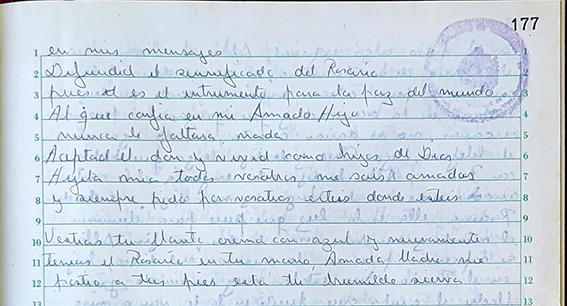 177
1 en mis mensajes 1
2 Difundid el significado del Rosario 2
3 pues él es el intrumento para la paz del mundo 3
4 Al que confia en mi Amado Hijo 4
5 nunca le faltara nada 5
6 Aceptad el don y vivid como hijos de Dios 6
7 mia todos vosotros me sois amados 7
8 y siempre pido por vosotros esteis donde esteis 8
9 9
10 Vestias tu Manto crema con azul y nuevamente 10
11 tenias el Rosario en tu mano, Amada Madre mia 11
12 a tus pies está tu humilde sierva 12
13 13